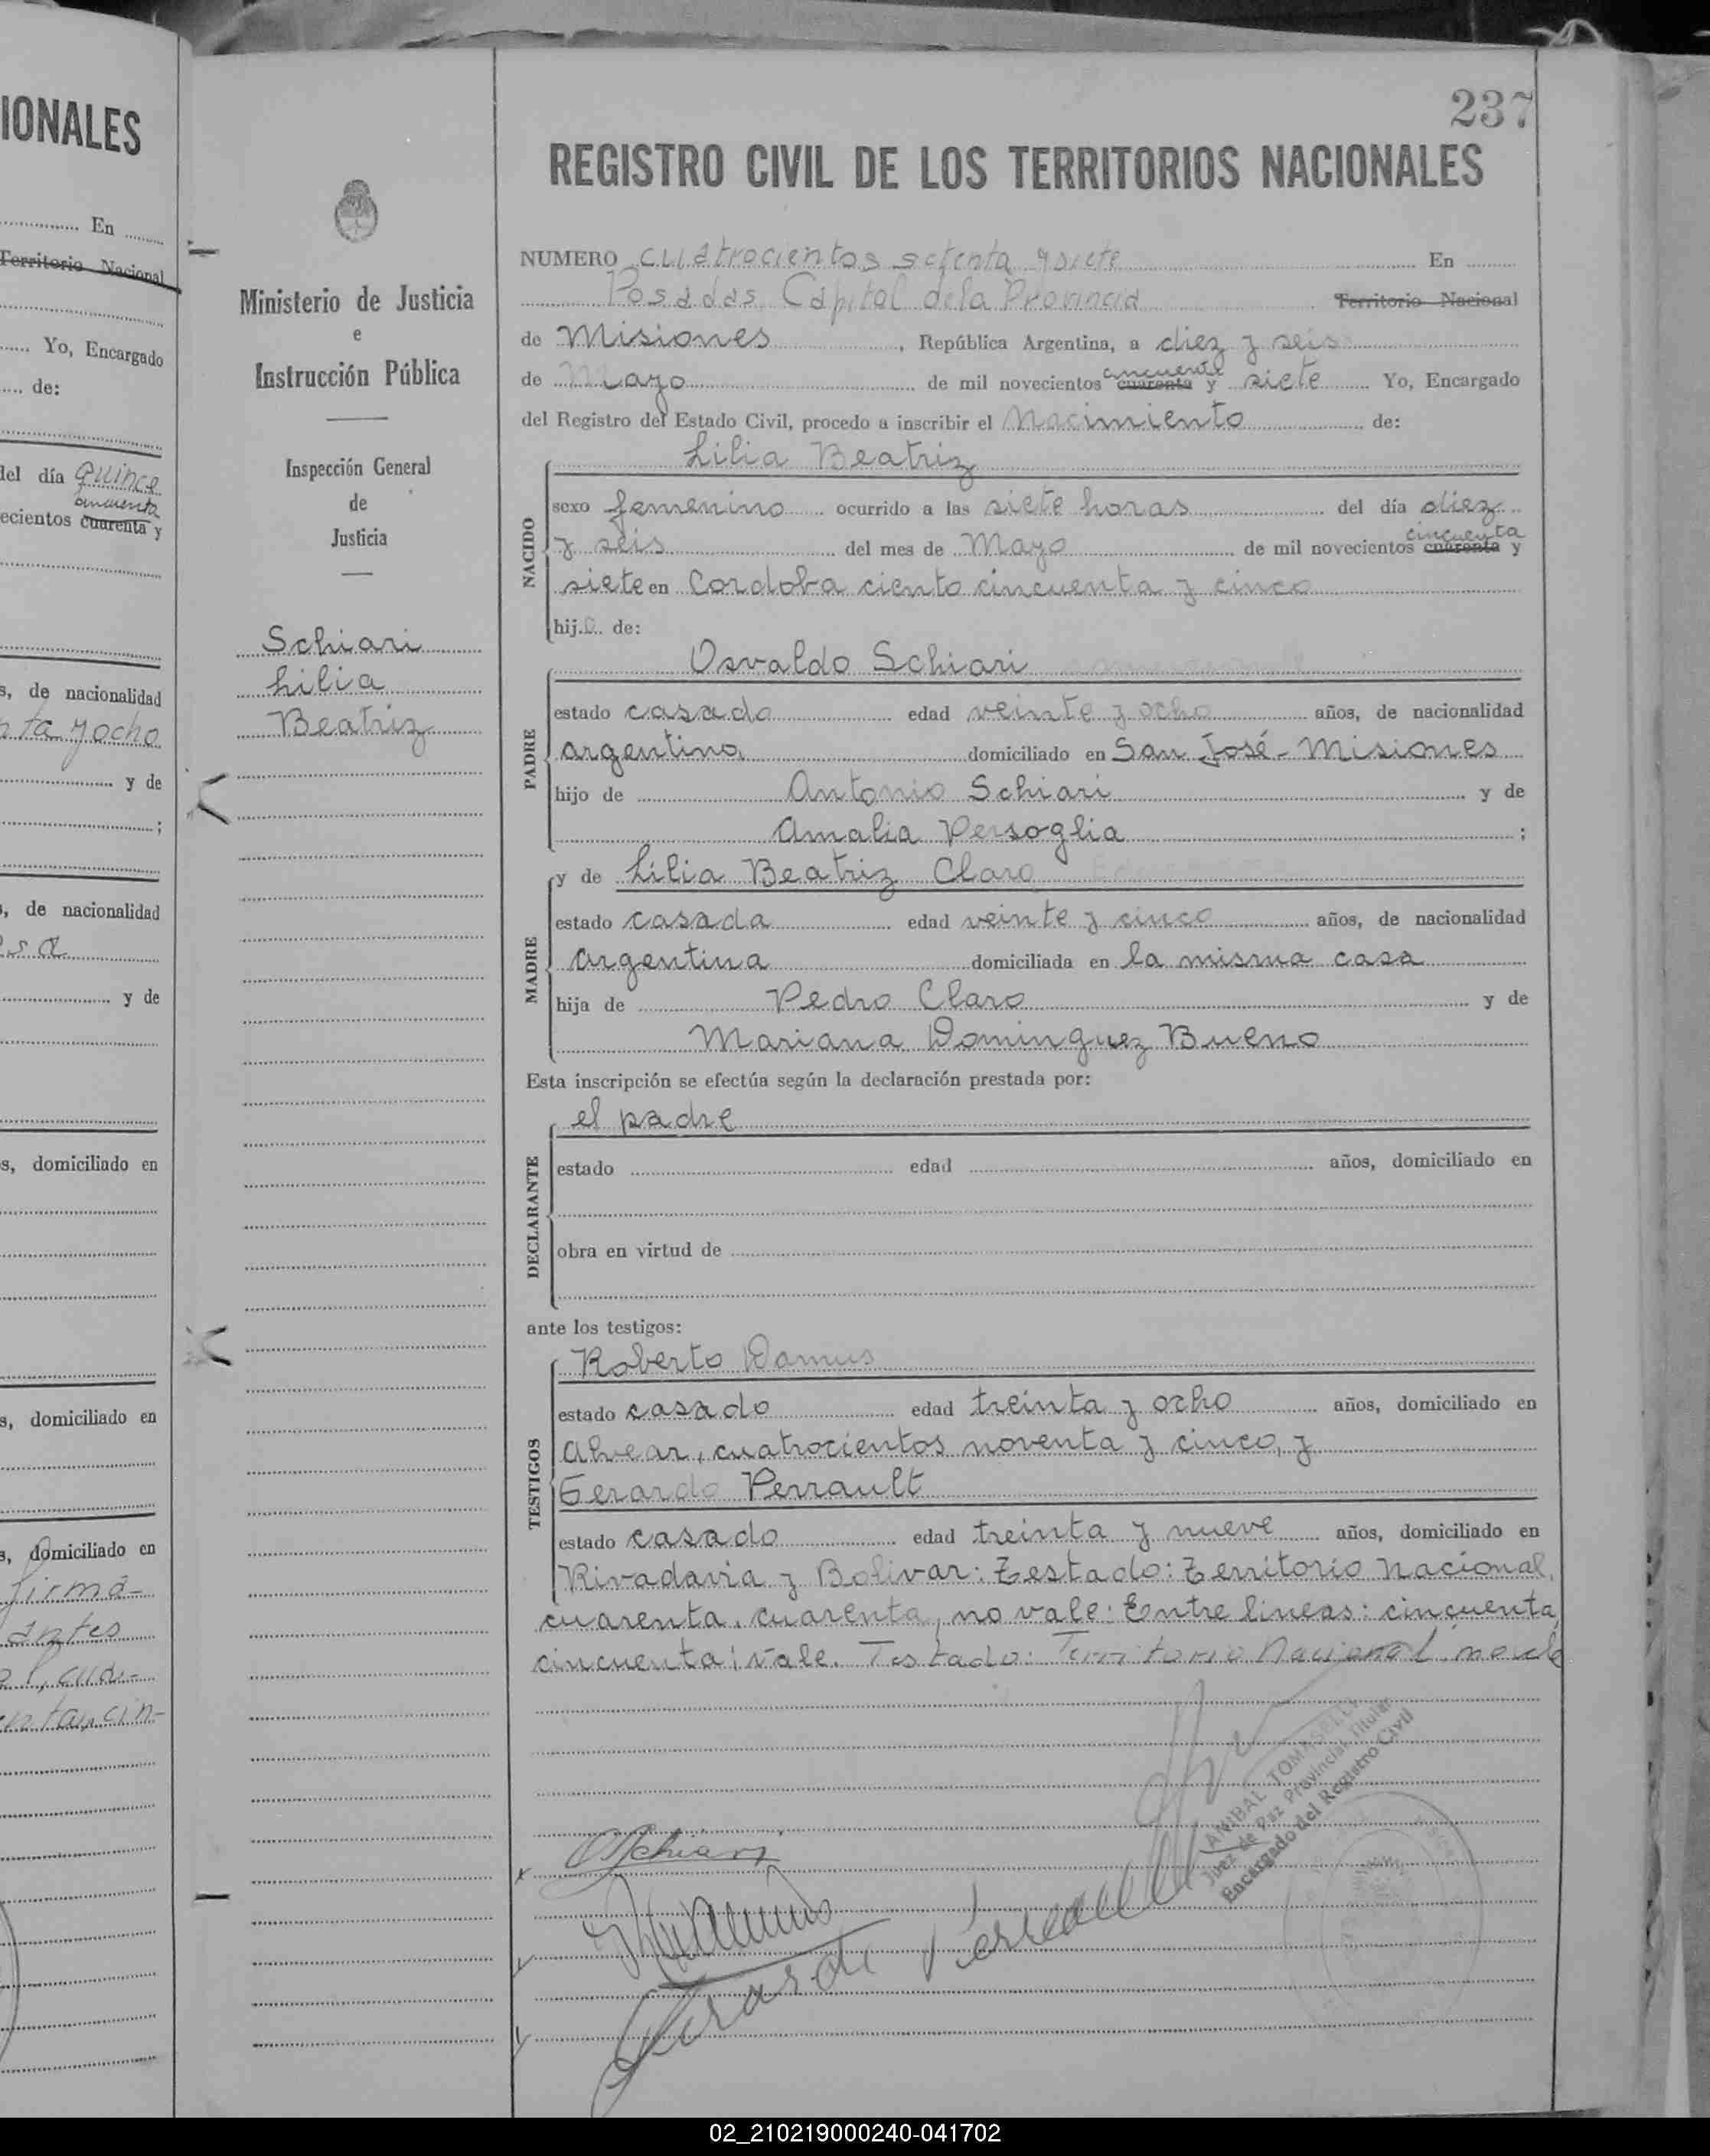 IONALES
En
Territorio Nacional
Yo, Encargado
de:
del día quince
cincuenta
ecientos cuarenta y
s, de nacionalidad
nta y ocho
y de
;
s, de nacionalidad
y de
s, domiciliado en
s, domiciliado en
s, domiciliado en
firma-
antes
ntay, cin-
Ministerio de Justicia
e
Instrucción Pública
Inspección General
de
Justicia
Schiari
Lilia
Beatriz
237
REGISTRO CIVIL DE LOS TERRITORIOS NACIONALES
NUMERO cuatrocientos setenta y siete En
Posadas, Capital de la Provincia Territorio Nacional
de Misiones, República Argentina, a diez y seis
de Mayo de mil novecientos cincuenta cuarenta y siete Yo, Encargado
del Registro del Estado Civil, procedo a inscribir el Nacimiento de:
NACIDO
Lilia Beatriz
sexo femenino ocurrido a las siete horas del día diez
y seis del mes de Mayo de mil novecientos cincuenta cuarenta y
siete en Cordoba ciento cincuenta y cinco
hij.a. de:
PADRE
Osvaldo Schiari
estado casado edad veinte y ocho años, de nacionalidad
argentina domiciliado en San José - Misiones
hijo de Antonio Schiari y de
Amalia Persoglia ;
MADRE
y de Lilia Beatriz Claro
estado casada edad veinte y cinco años, de nacionalidad
argentina domiciliada en la misma casa
hija de Pedro Claro y de
Mariana Dominguez Bueno
Esta inscripción se efectúa según la declaración prestada por:
DECLARANTE
el padre
estado edad años, domiciliado en
obra en virtud de
ante los testigos:
TESTIGOS
Roberto Damus
estado casado edad treinta y ocho años, domiciliado en
Alvear, cuatrocientos noventa y cinco, y
Gerardo Perrault
estado casado edad treinta y nueve años, domiciliado en
Rivadavia y Bolivar: Testado: Territorio Nacional,
cuarenta, cuarenta, no vale: Entre lineas: cincuenta,
cincuenta: vale. Testado: Territorio Nacional no vale
ANIBAL TOMASELLI
Juez de Paz Provincial Titular
Encargado del Registro Civil
OSchiari
Gerardo Perrault
02_210219000240-041702